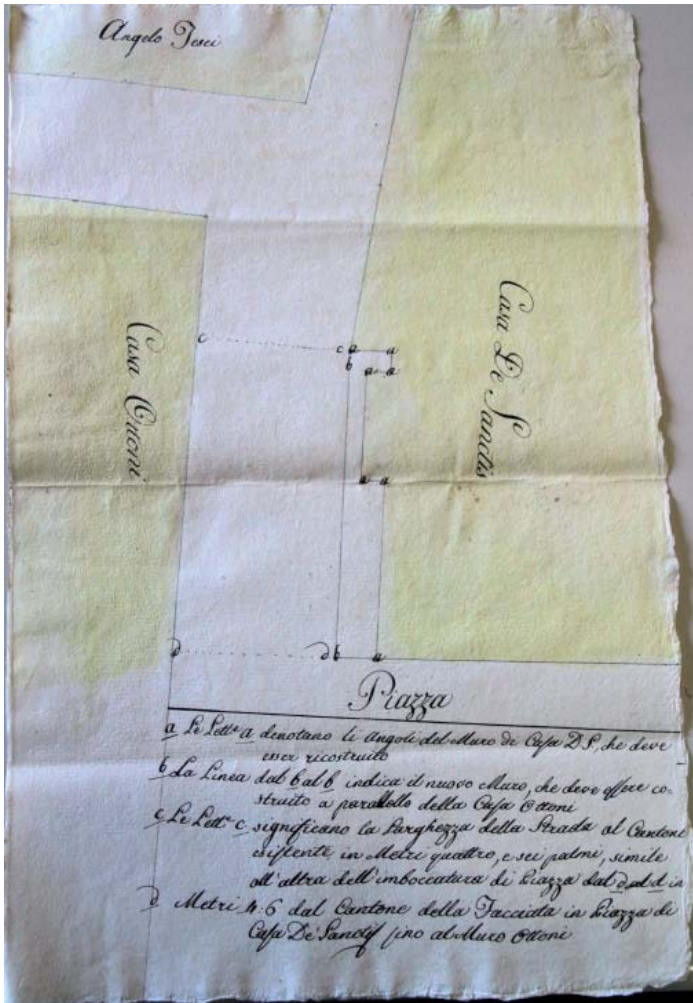 Angelo Tesei
Casa Ottoni
Casa De Sanctis
c
c a a
b
a a
a a
d d b a
Piazza
a Le Lette a denotano li Angoli del Muro di Casa D.S., che deve
esser ricostruito
b La Linea dal b al b indica il nuovo Muro, che deve essere co-
struito a parallello della Casa Ottoni
c Le Lette c significano la Larghezza della Strada al Cantone
esistente in Metri quattro, e sei palmi, simile
all'altra dell'imboccatura di Piazza dal d al d in
d Metri 4:6 dal Cantone della Facciata in Piazza di
Casa De' Sanctis fino al Muro Ottoni